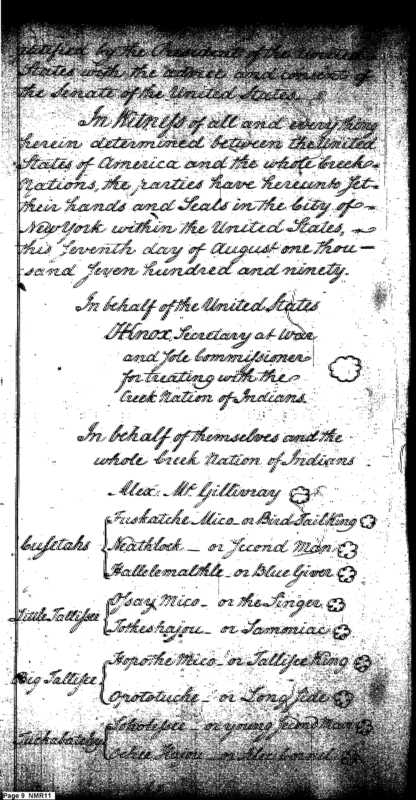 ratified by the President of the United
States with the advice and consent of
the Senate of the United States.
In Witness of all and every thing
herein determined between the United
States of America and the whole Creek
Nations, the parties have hereunto set
their hands and Seals in the City of
New York within the United States,
this Seventh day of August one thou-
sand Seven hundred and ninety.
In behalf of the United States
HKnox, Secretary at War
and Sole Commissioner
for treating with the
Creek Nation of Indians.
In behalf of themselves and the
whole Creek Nation of Indians
Alex: Mc Gillivray
Cusetahs
Fuskatche Mico or Bird Tail King
Neathlock - or Second Man
Hallelemalthle or Blue Giver
Little Tallisee
Opay Mico - or the Singer
Totkeshajou - or Sammiac
Big Tallisee
Hopothe Mico - or Tallisee King
Opototuche - or Long Side
Tuckabatchy
Soholessee - or young Second Man
Ochee Hajou - or
Page 9 NMR11